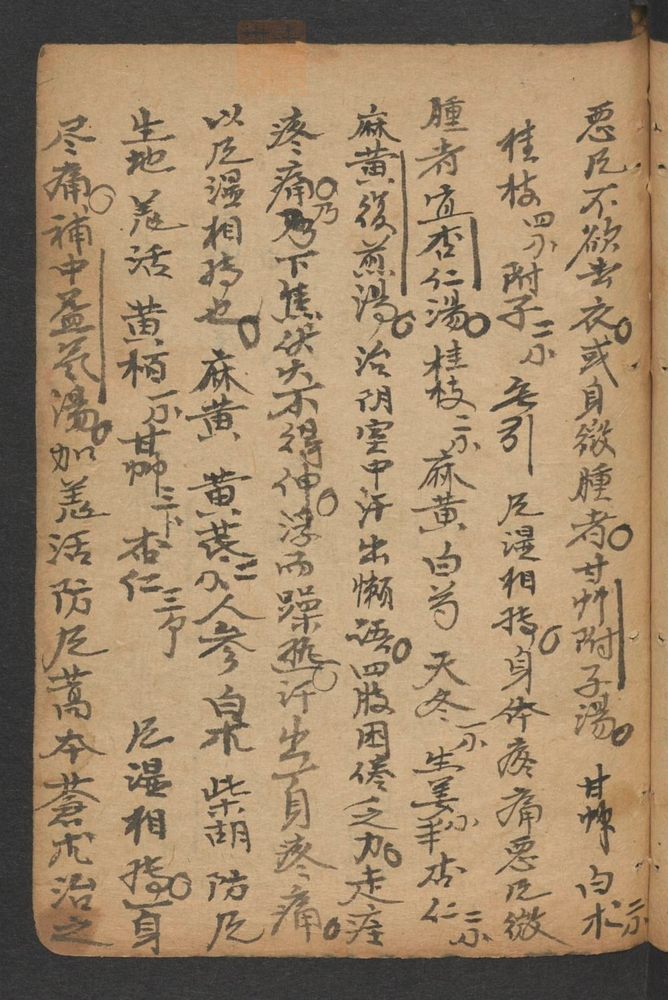 惡风不欲去衣。或身微腫者。甘艸附子湯。甘艸 白术
桂枝四分 附子二分 無引 风湿相搏。身体疼痛惡风微
腫者宜杏仁湯。桂枝二分 麻黄 白芍 天冬一分 生姜半分 杏仁二分
麻黄復煎湯。治阴室中汗出懒语。四肢困倦乏力。走疰
疼痛。乃下焦伏火不得伸。浮而躁熱汗出一身疼痛。
以风湿相搏也。麻黄 黄茋二分 人参 白术 柴胡 防风
生地 羌活 黄栢一分 甘艸三下 杏仁三个 风湿相搏。一身
尽痛。補中益气湯。加羌活防风蒿本蒼朮治之